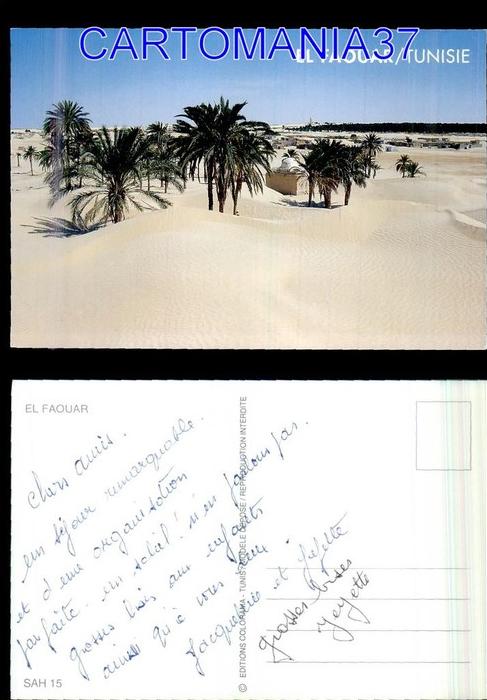 CARTOMANIA37
EL FAOUAR/TUNISIE
EL FAOUAR
Chers amis.
un séjour remarquable.
et d'une organisation
parfaite. un soleil! n'en parlons pas.
grosses bises aux enfants
ainsi qu'à vous deux
Jacqueline et
grosses bises
Yeyette
SAH 15
© EDITIONS COLORAMA - TUNIS / MODELE DEPOSE / REPRODUCTION INTERDITE